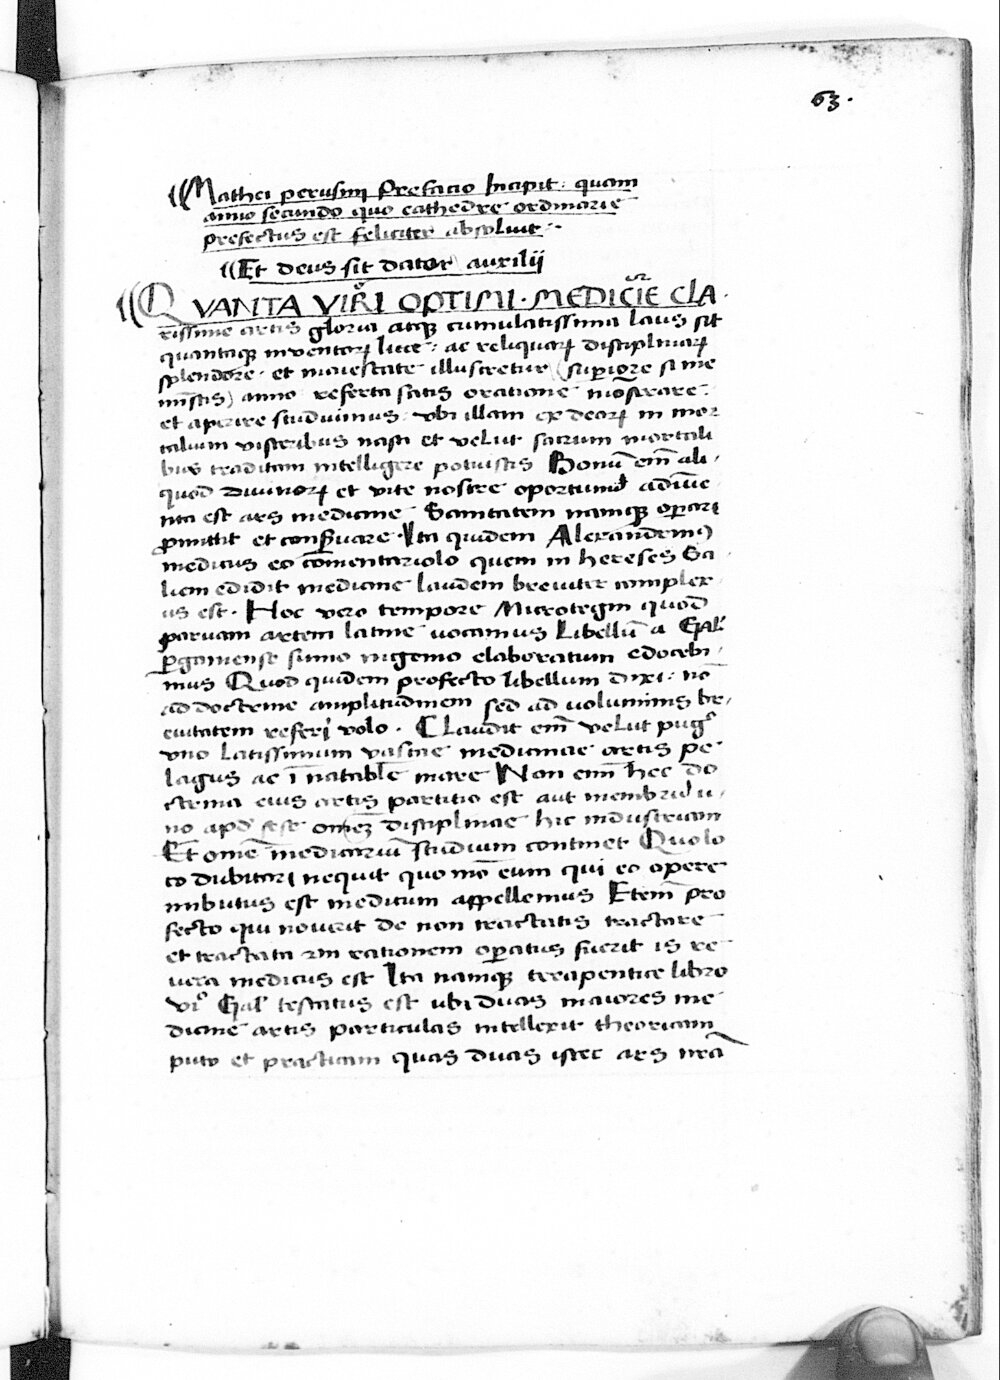 63.
Mathei perusini Prefacio Incipit: quam
anno secundo quo cathedre ordinarie
prefectus est feliciter absoluit:·
Et deus sit dator auxilii
QVANTA VIRI OPTIMI · MEDICIE CLA·
rissime artis gloria atqꝫ cumulatissima laus sit
quantaqꝫ inventoꝝ luce: ac reliquaꝝ disciplinaꝝ
splendore· et maiestate illustretur (superiore si me
ministis) anno referta satis oratione mōstrare·
et aperire studuimus· vbi illam ex deoꝝ in mor
talium visceribus nasci et velut sacrum mortali
bus traditam intelligere potuistis Bonū em̄ ali
quod diuinoꝝ et vite nostre oportunū adīue
nta est ars medicine Sanitatem namqꝫ operari
ꝓmittit et conseruare· Ita quidem Alexandrinꝰ
medicus eo cōmentariolo quem in hereses Ga
lieni edidit medicine laudem breuiter complex
us est· Hoc vero tempore Microtegni quod
paruam artem latine vocamus Libellū a Gal'
ꝑgamense sumo ingenio elaboratum edocebi
mus Quod quidem profecto libellum dixi: nō
ad doctrine amplitudinem sed ad voluminis bre
euitatem referri volo· Claudit em̄ velut pug'
vno latissimum vastae medicinae artis pe
lagus ac ī natabile mare Nan enim hec do
ctrina eius artis partitio est aut membrū u
no apd' sese omēꝫ disciplinae hic industriam
Et omē medicariū studium continet Quo lo
co dubitari nequit quo mō eum qui eo opere
imbutus est meditum appellemus Etem̄ pro
fecto qui nouerit de non tractatis tractare
et tractata in rationem operatus fuerit is re
uera medicus est Ita namqꝫ terapentice libro
Gal' testatus est ubi duas maiores me
dicine artis particulas intellexit theoricam
puto et practicam quas duas istec ars nrā